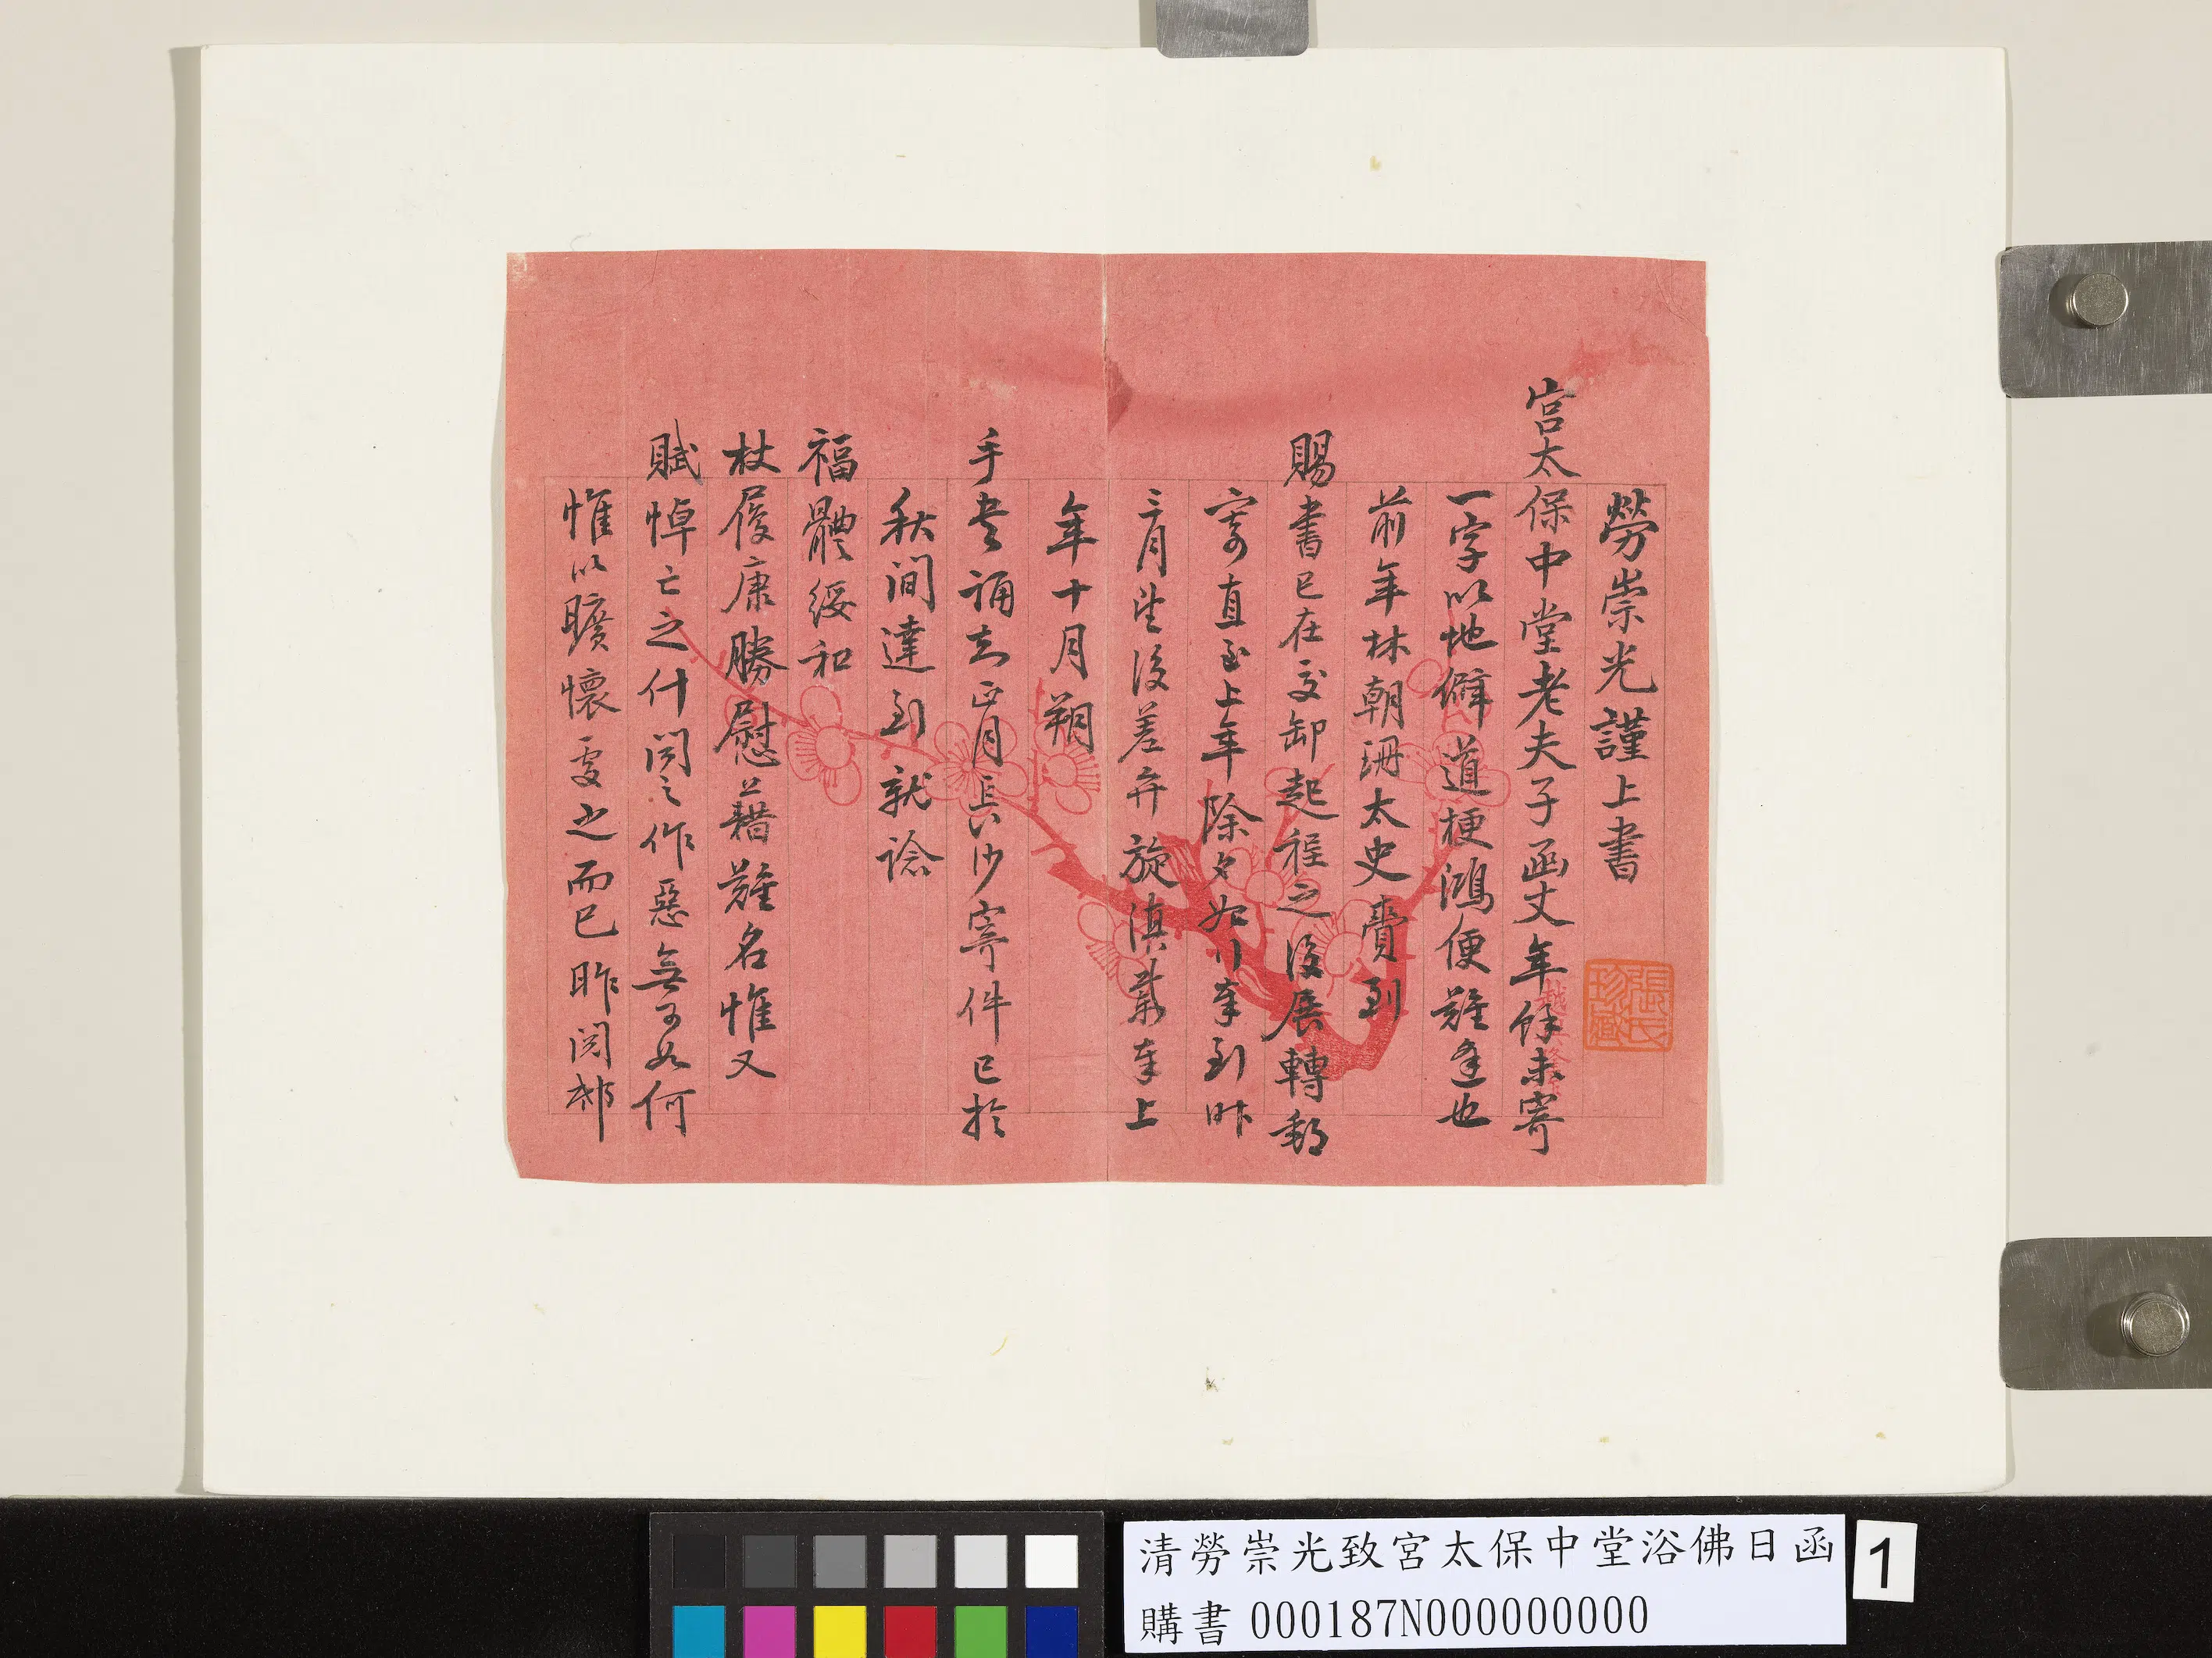 勞崇光謹上書
宮太保中堂老夫子函丈年餘未寄
一字以地僻道梗鴻便難逢也
前年林朝珊太史賫到
賜書已在交卸起程之後展轉郵
寄直至上年除夕始奉到昨
三月望後差弁旋滇兼奉上
年十月朔
手書誦悉正月長沙寄件已於
秋間達到就諗
福體綏和
杖履康勝慰藉難名惟又
賦悼亡之什聞之作惡無可如何
惟以曠懷處之而已昨閱邸
張氏珍藏
清勞崇光致宮太保中堂浴佛日函
購書 000187N000000000
1